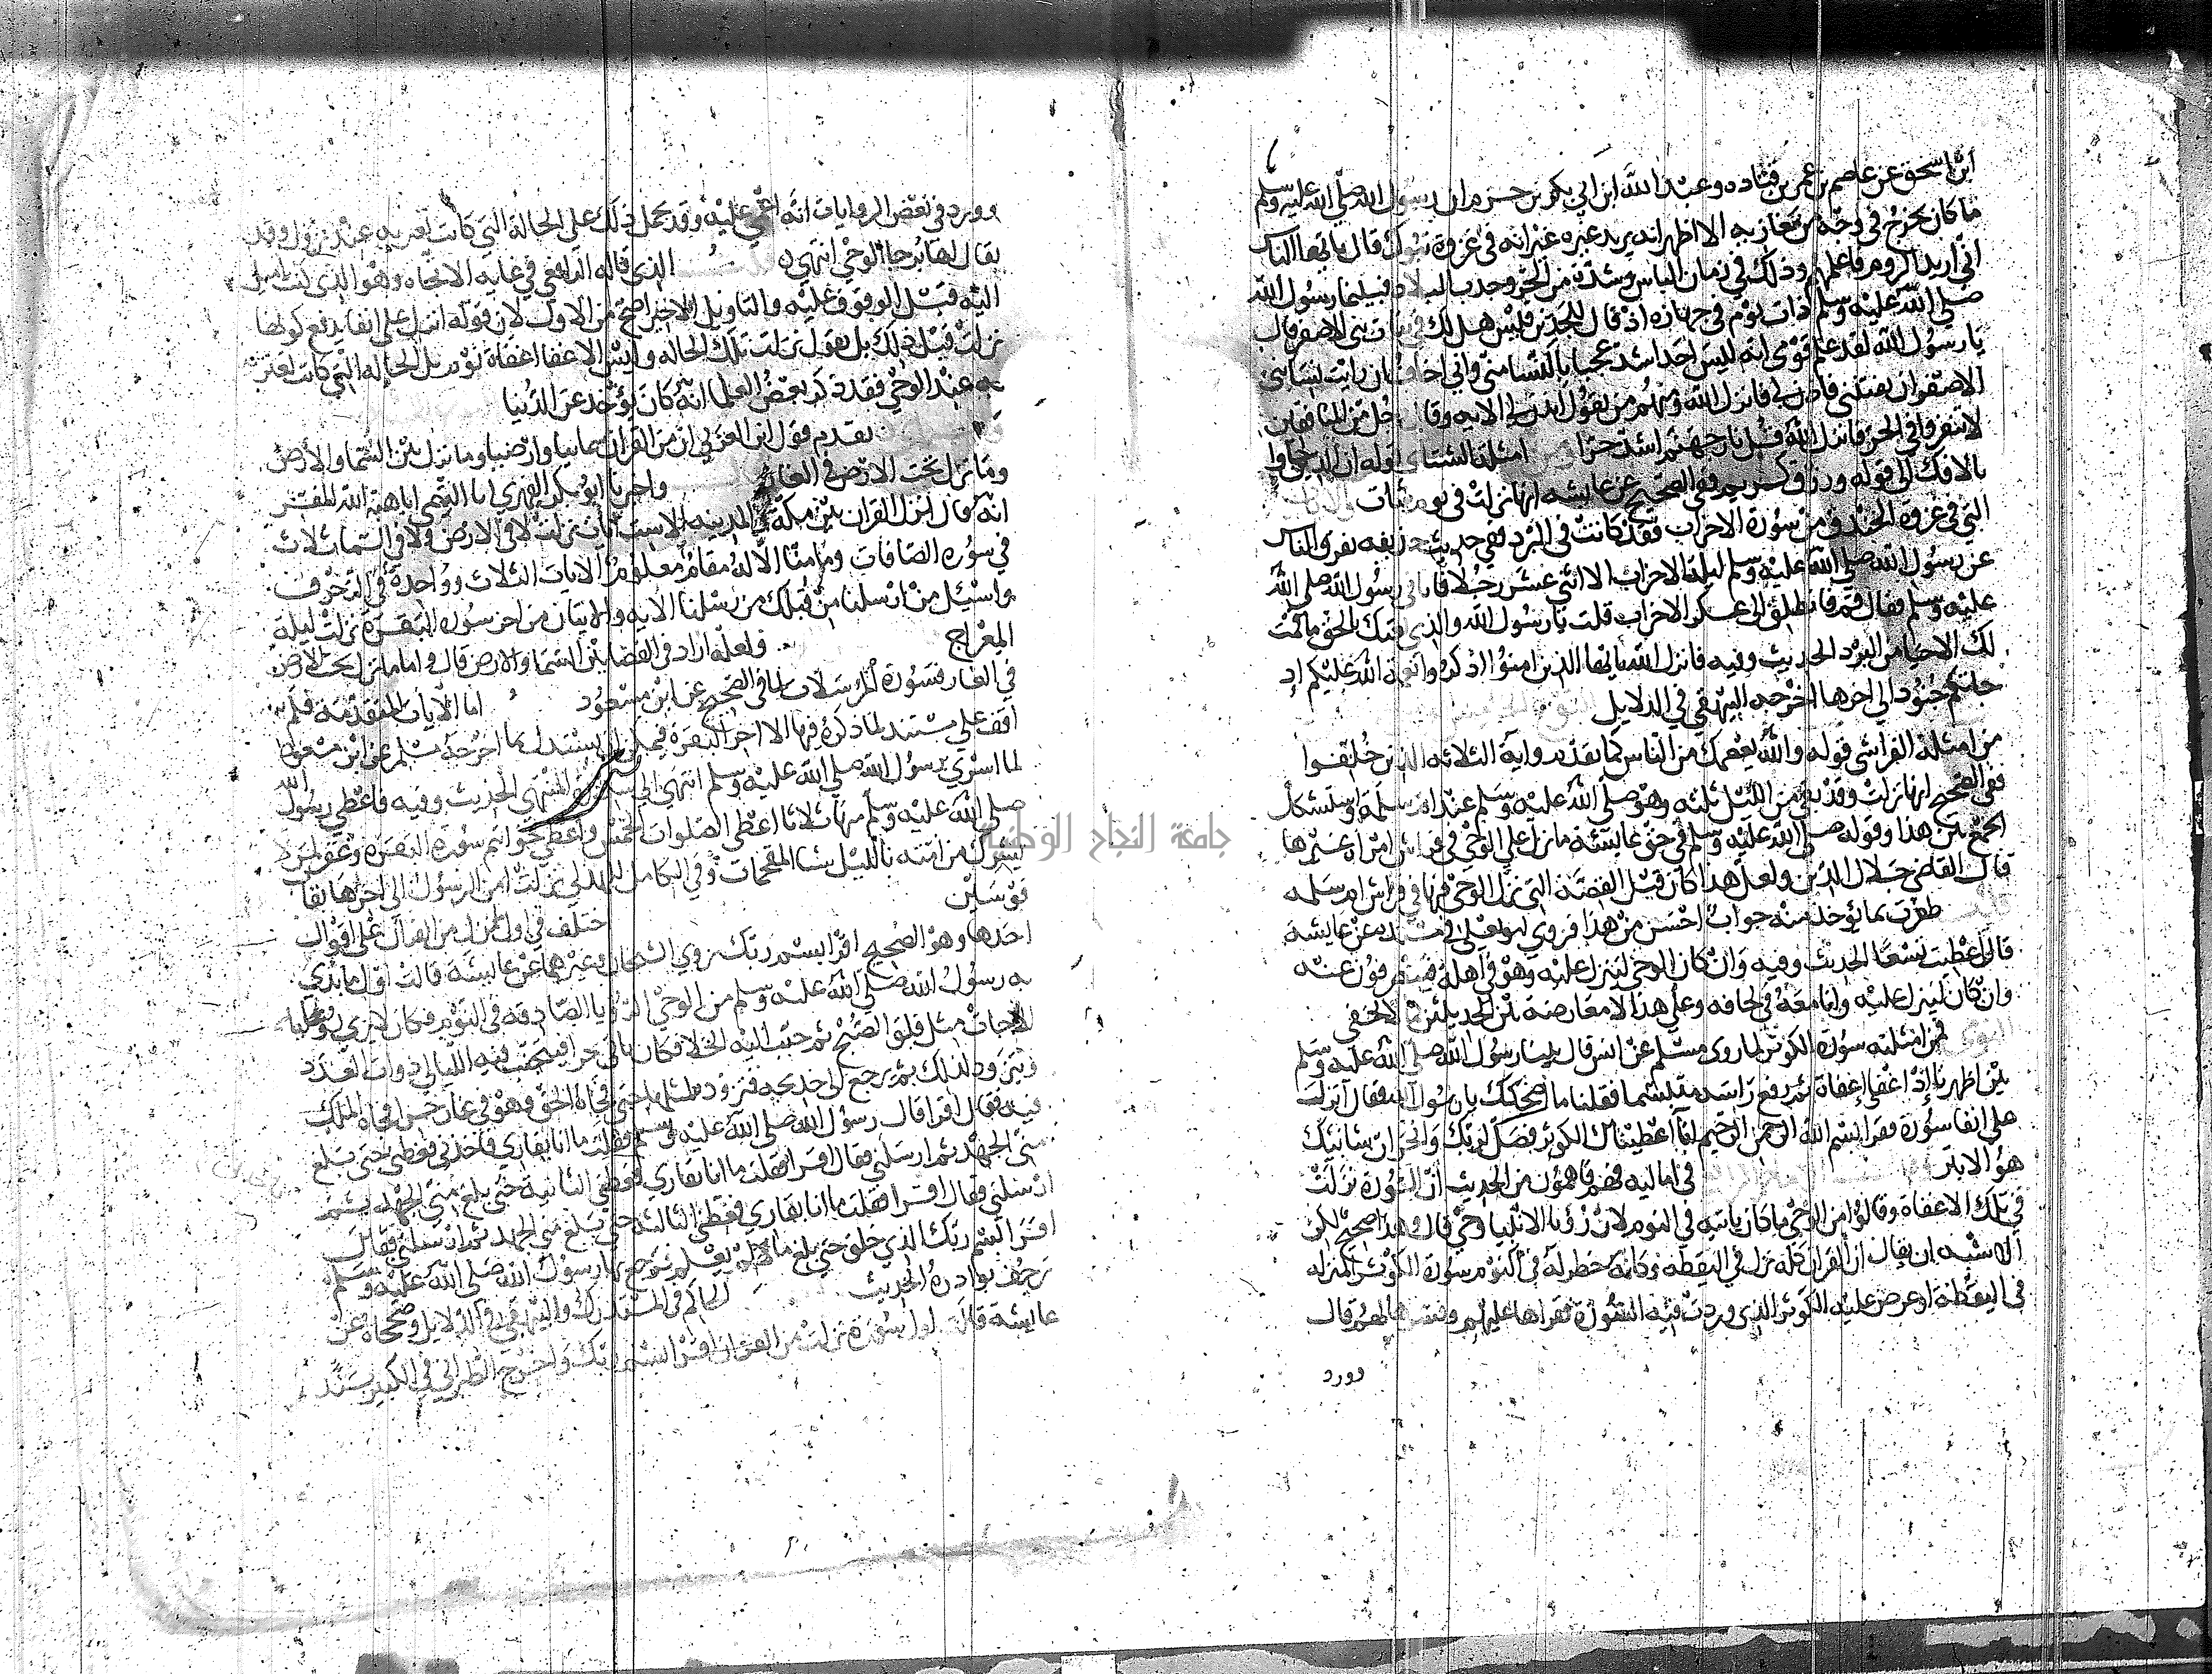 ابن اسحق عن عاصم بن عمر بن قتاده وعبد الله ابن ابي بكر بن حزم ان رسول الله صلي الله عليه وسلم
ما كان يخرج في وجه من مغازيه الا اظهر انه يريد غيره غير انه في غزوة تبوك قال يايها الناس
اني اريد الروم فاعلمهم وذلك في زمان الباس وشدة من الحر وجدب البلاد فبينما رسول الله
صلي الله عليه وسلم ذات يوم في جهازه اذ قال للجد بن قيس هل لك في بنات بني الاصفر قال
يا رسول الله لقد علم قومي انه ليس احد اشد عجبا بالنسا مني واني اخاف ان رايت نسا بني
الاصفر ان يفتنني فاذن لي فانزل الله ومنهم من يقول ايذن لي الايه وقال رجل من المنافقين
لا تنفروا في الحر فانزل الله قل نار جهنم اشد حرا امثلة الشتاي قوله ان الذين جاوا
بالافك الي قوله ورزق كريم ففي الصحيح عن عايشه انها نزلت في يوم شات والايات
التي في غزوة الخندق من سورة الاحزاب فقد كانت في البرد ففي حديث حذيفه تفرق الناس
عن رسول الله صلي الله عليه وسلم ليلة الاحزاب الا اثني عشر رجلا فاتاني رسول الله صلي الله
عليه وسلم فقال قم فانطلق الي عسكر الاحزاب قلت يا رسول الله والذي بعثك بالحق ما قمت
لك الا حيا من البرد الحديث وفيه فانزل الله يايها الذين امنوا اذكروا نعمة الله عليكم اذ
جاتكم جنود الي اخرها اخرجه البيهقي في الدلايل
من امثلة الفراشي قوله والله يعصمك من الناس كما تقدم واية الثلاثه الذين خلفوا
ففي الصحيح انها نزلت وقد بقي من الليل ثلثه وهو صلي الله عليه وسلم عند ام سلمة واستشكل
الجمع بين هذا وقوله صلي الله عليه وسلم في حق عايشة ما نزل علي الوحي في فراش امراة غيرها
قال القاضي جلال الدين ولعل هذا كان قبل القصة التي نزل الوحي فيها في فراش ام سلمه
ظفرت بما يؤخذ منه جواب احسن من هذا فروي ابو يعلي في مسنده عن عايشة
قالت اعطيت تسعا الحديث وفيه وان كان الوحي لينزل عليه وهو في اهله فيتفرقون عنه
وان كان لينزل عليه وانا معه في لحافه وعلي هذا لا معارضة بين الحديثين كما لا يخفي
فمن امثلته سورة الكوثر لما روي مسلم عن انس قال بينا رسول الله صلي الله عليه وسلم
بين اظهرنا اذ اغفي اغفاة ثم رفع راسه متبسما فقلنا ما اضحكك يا رسول الله فقال انزلت
علي انفا سورة فقرا بسم الله الرحمن الرحيم انا اعطيناك الكوثر فصل لربك وانحر ان شانيك
هو الابتر في اماليه فهم فاهمون من الحديث ان السورة نزلت
في تلك الاغفاة وقالوا من الوحي ما كان ياتيه في النوم لان رؤيا الانبيا وحي قال وهذا صحيح لكن
الاشبه ان يقال ان القران كله نزل في اليقظه وكانه خطر له في النوم سورة الكوثر المنزله
في اليقظة او عرض عليه الكوثر الذي وردت فيه السورة فقراها عليهم وفسرها لهم قال
وورد
وورد في بعض الروايات انه اغمي عليه وقد يحمل ذلك علي الحالة التي كانت تعتريه عند نزول وقد
يقال لها برحا الوحي انتهي الذي قاله الرافعي في غاية الاتجاه وهو الذي كنت اميل
اليه قبل الوقوف عليه والتاويل الاخير اصح من الاول لان قوله انزل علي انفا يدفع كونها
نزلت قبل ذلك بل نقول نزلت تلك الحاله وليس الاغفا اغفاة نوم بل الحاله التي كانت تعتر
يه عند الوحي فقد ذكر بعض العلما انه كان يؤخذ عن الدنيا
تقدم قول ابن العربي ان من القران سماييا وارضيا وما نزل بين السما والارض
وما نزل تحت الارض في الغار واخبرنا ابو بكر الفهري انا التميمي انا هبة الله المفسر
انه قال نزل القران بين مكة والمدينه الا ست ايات نزلت لا في الارض ولا في السما ثلاث
في سورة الصافات وما منا الا له مقام معلوم الايات الثلاث وواحدة في الزخرف
واسئل من ارسلنا من قبلك من رسلنا الايه والايتان من اخر سورة البقرة نزلت ليلة
المعراج ولعله اراد في الفضا بين السما والارض قال واما ما نزل تحت الارض
في الغار فسورة المرسلات كما في الصحيح عن ابن مسعود اما الايات المتقدمة فلم
اقف علي مستند لما ذكره فيها الا اخر البقرة فيمكن ان يستدل بما اخرجه مسلم عن ابن مسعود
لما اسري برسول الله صلي الله عليه وسلم انتهي الي سدرة المنتهي الحديث وفيه فاعطي رسول الله
صلي الله عليه وسلم منها ثلاثا اعطي الصلوات الخمس واعطي خواتيم سورة البقرة وغفر لمن لا
يشرك من امته بالله شيا المقحمات وفي الكامل للهذلي نزلت امن الرسول الي اخرها بقا
ب قوسين
ختلف في اول ما نزل من القران علي اقوال
احدها وهو الصحيح اقرا بسم ربك روي الشيخان وغيرهما عن عايشة قالت اول ما بدي
به رسول الله صلي الله عليه وسلم من الوحي الرؤيا الصادقه في النوم فكان لا يري رؤيا
الا جات مثل فلق الصبح ثم حبب اليه الخلا فكان ياتي حرا فيتحنث فيه الليالي ذوات العدد
ويتزود لذلك ثم يرجع الي خديجه فتزوده لمثلها حتي فجاه الحق وهو في غار حرا فجاه الملك
فيه فقال اقرا قال رسول الله صلي الله عليه وسلم فقلت ما انا بقاري فاخذني فغطني حتي بلغ
مني الجهد ثم ارسلني فقال اقرا فقلت ما انا بقاري فغطني الثانية حتي بلغ مني الجهد ثم
ارسلني فقال اقرا فقلت ما انا بقاري فغطني الثالثة حتي بلغ مني الجهد ثم ارسلني فقال
اقرا بسم ربك الذي خلق حتي بلغ ما لم يعلم فرجع بها رسول الله صلي الله عليه وسلم
ترجف بوادره الحديث الحاكم في المستدرك والبيهقي في الدلايل وصححاه عن
عايشة قالت اول سورة نزلت من القران اقرا بسم ربك واخرج الطبراني في الكبير بسند
جامعة النجاح الوطنية